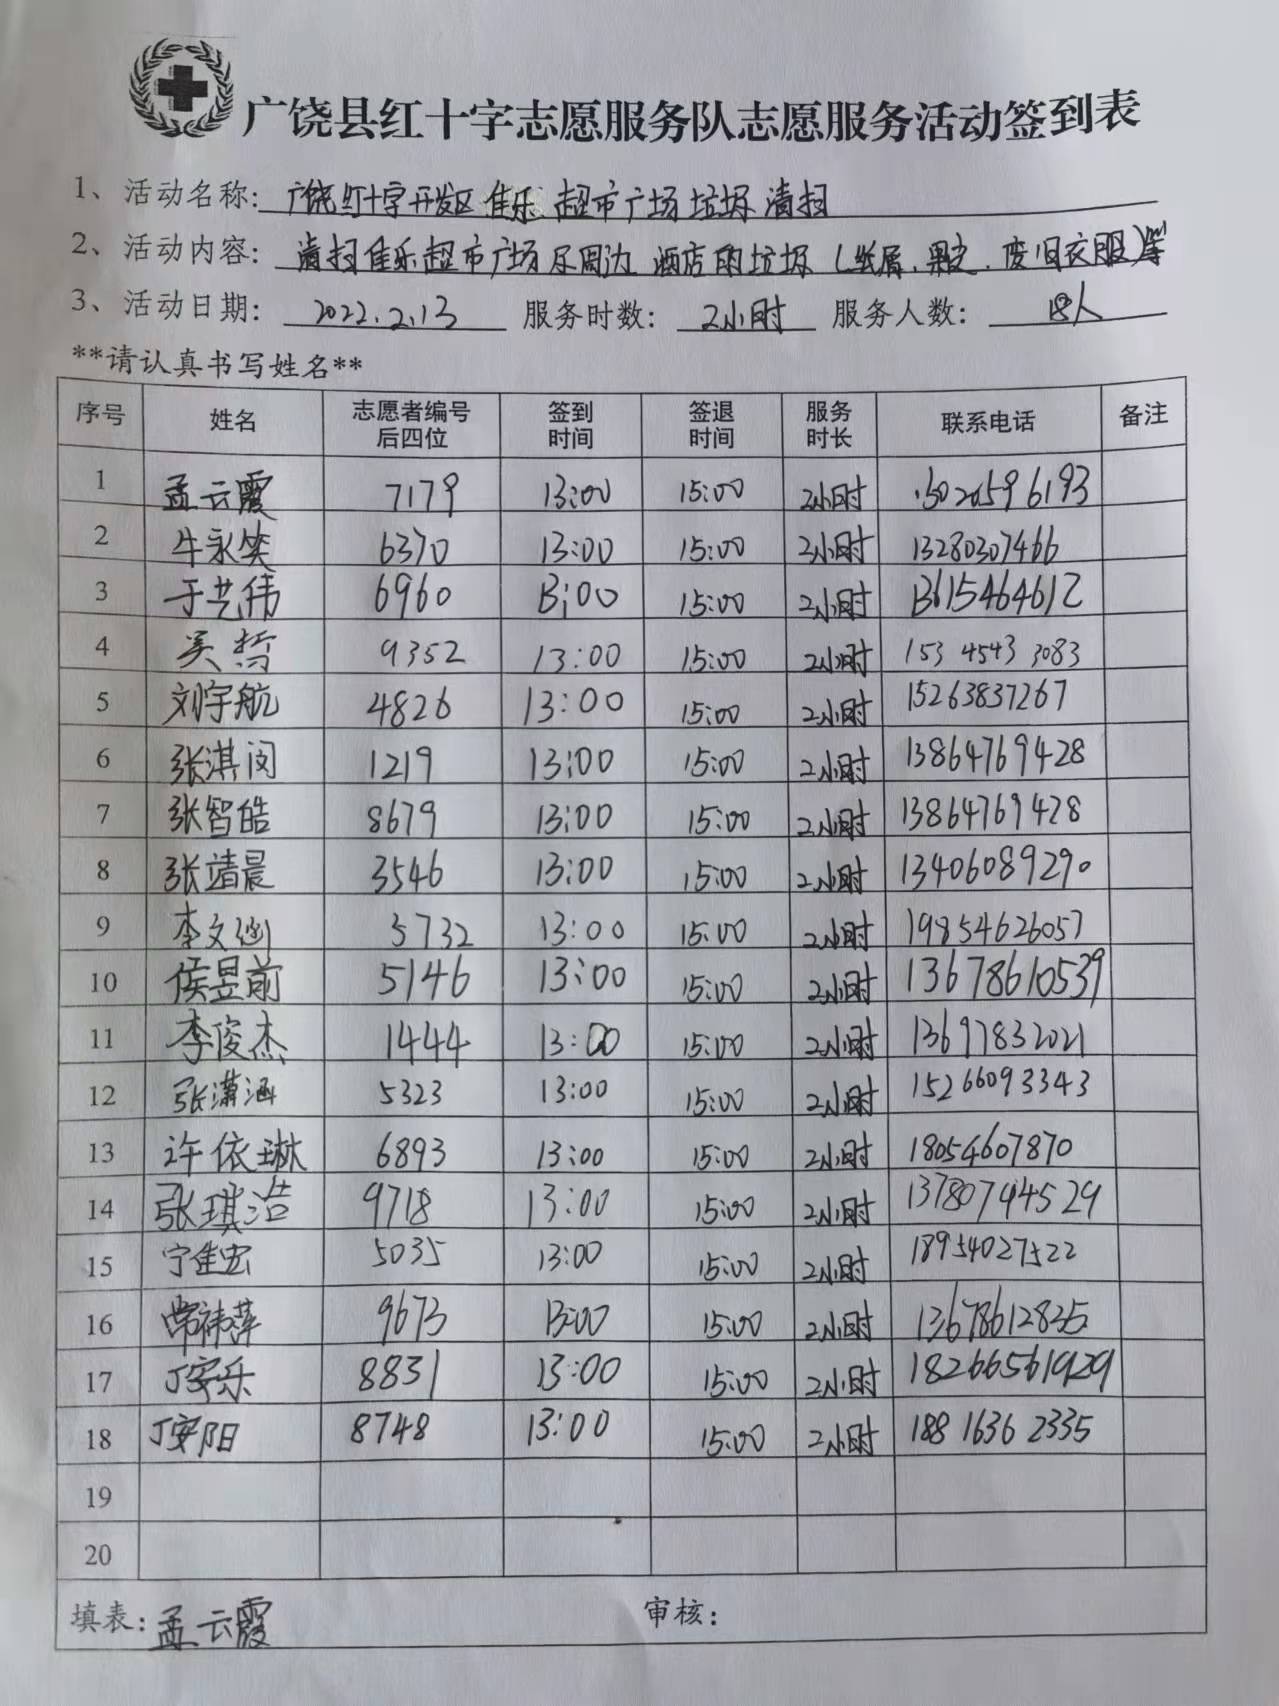 广饶县红十字志愿服务队志愿服务活动签到表
1、活动名称：广饶红十字开发区佳乐超市广场垃圾清扫
2、活动内容：清扫佳乐超市广场及周边酒店的垃圾（纸屑、果皮、废旧衣服）等
3、活动日期：2022.2.13 服务时数：2小时 服务人数：18人
**请认真书写姓名**
序号 姓名 志愿者编号后四位 签到时间 签退时间 服务时长 联系电话 备注
1 孟云霞 7179 13:00 15:00 2小时 15020596193
2 牛永笑 6370 13:00 15:00 2小时 13280307466
3 于艺伟 6960 13:00 15:00 2小时 13615464612
4 吴哲 9352 13:00 15:00 2小时 153 4543 3083
5 刘宇航 4826 13:00 15:00 2小时 15263837267
6 张淇闵 1219 13:00 15:00 2小时 13864769428
7 张智皓 8679 13:00 15:00 2小时 13864769428
8 张靖晨 3546 13:00 15:00 2小时 13406089290
9 李文涵 5732 13:00 15:00 2小时 19854626057
10 侯昱前 5146 13:00 15:00 2小时 13678610539
11 李俊杰 1444 13:00 15:00 2小时 13697832021
12 张潇涵 5323 13:00 15:00 2小时 15266093343
13 许依琳 6893 13:00 15:00 2小时 18054607870
14 张琪浩 9718 13:00 15:00 2小时 13780794529
15 宁佳宏 5035 13:00 15:00 2小时 18954027522
16 常祎萍 9673 13:00 15:00 2小时 13678612835
17 丁安乐 8831 13:00 15:00 2小时 18266561929
18 丁安阳 8748 13:00 15:00 2小时 188 1636 2335
19
20
填表：孟云霞 审核：